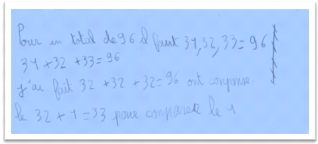 Pour un total de 96 il faut 31,32,33 = 96
31 + 32 + 33 = 96
j'ai fait 32 + 32 + 32 = 96 ont
le 32 + 1 = 33 pour le 1